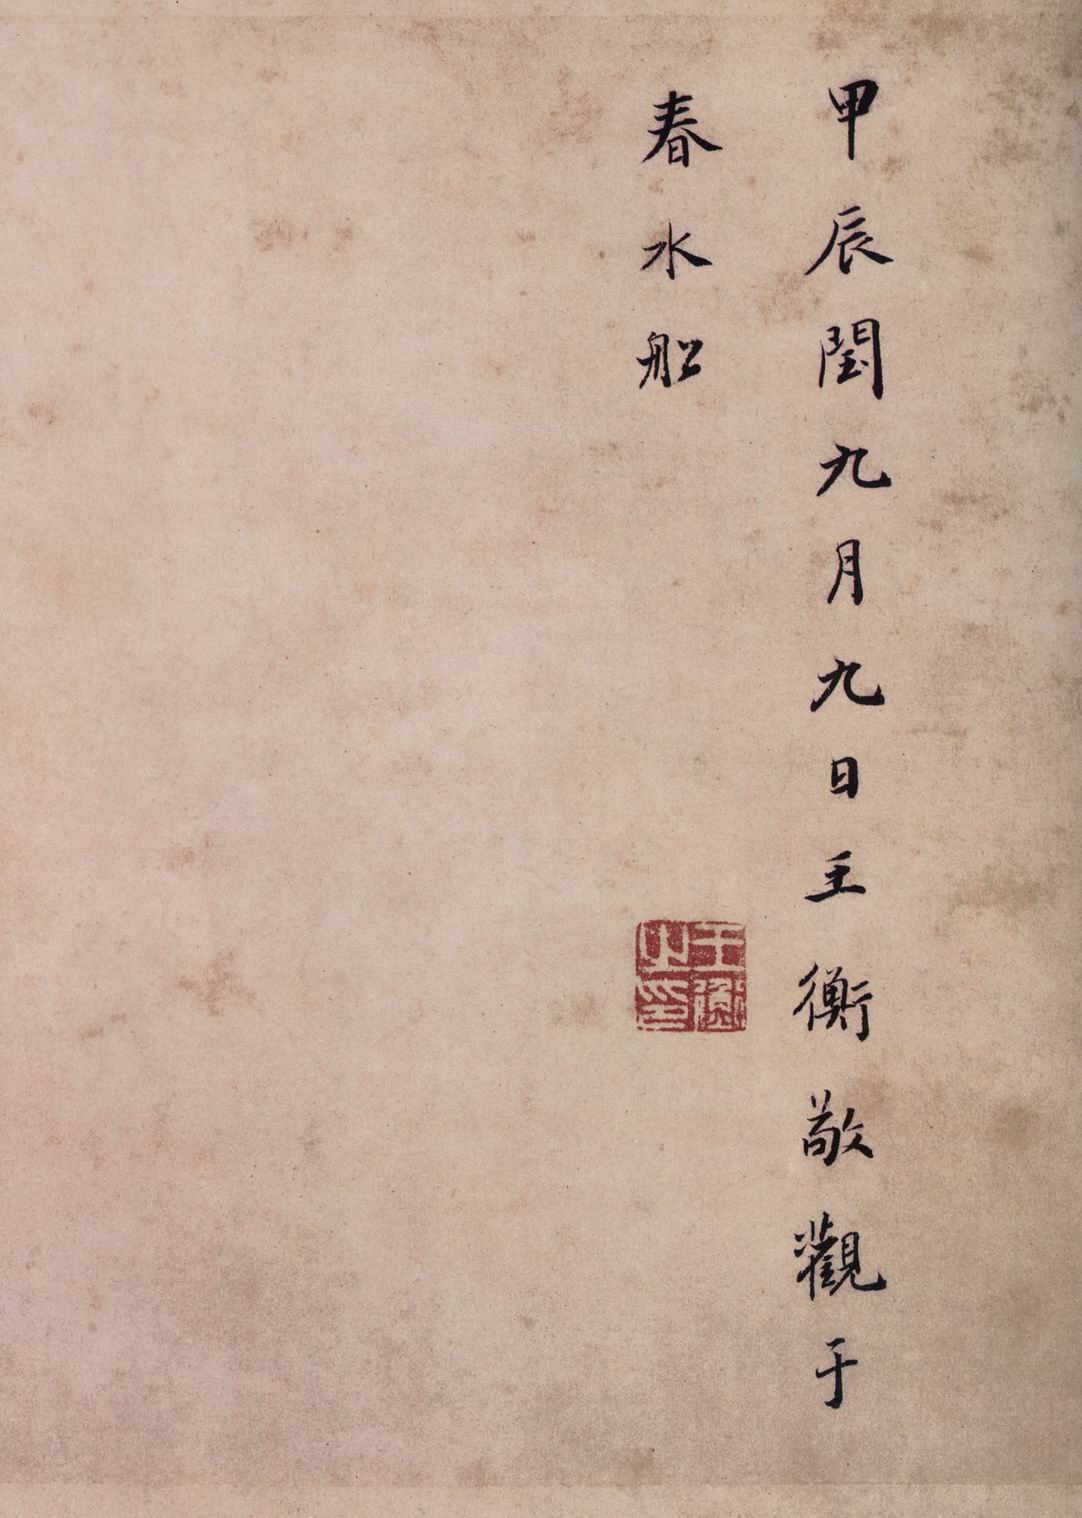 甲辰閏九月九日王衡敬觀于
春水船
王衡之印